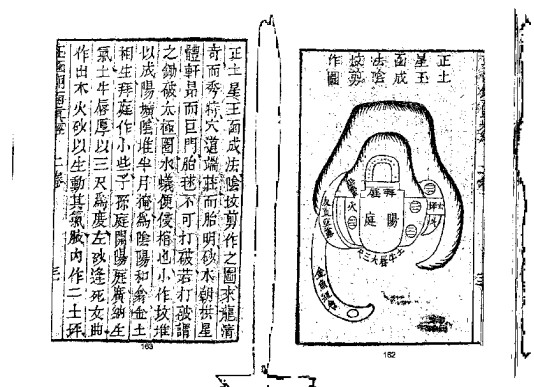 正土
星玉
函成
法陰
坟剪
作圖
拜庭
陽庭
火
162
正土星玉函成法陰坟剪作之圖求龍清
奇而秀特穴道端莊而胎明砂水朝拱星
體軒昂而巨門胎毬不可打破若打破謂
之鋤破太極圈水蟻便侵棺也小作坟堆
以成陽壙陰堆半月掩為陰陽和翕金土
相生拜庭作小些子孫庭開陽庭廣納生
氣土牛唇厚以三尺為度左砂逢死女曲
作出木火砂以生動其氣腋內作二土坪
163